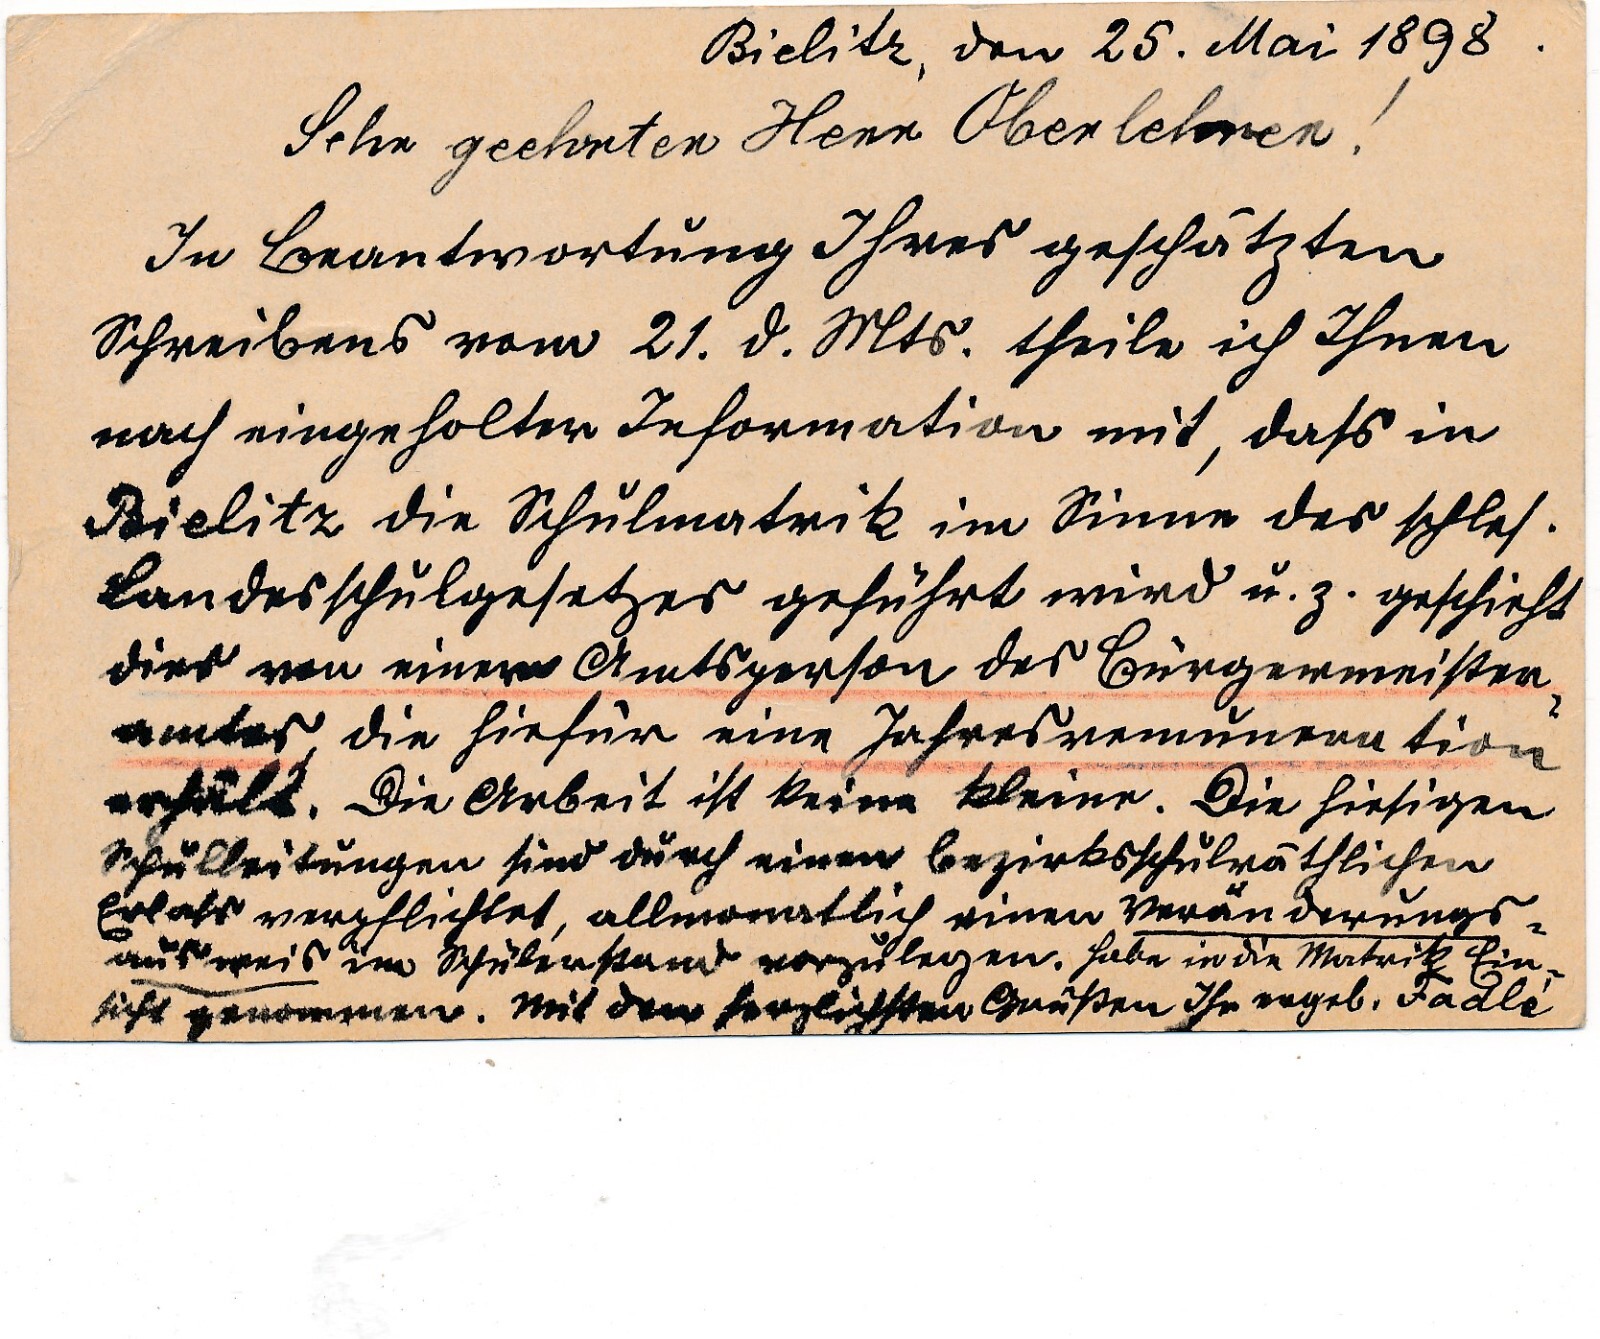 Bielitz, den 25. Mai 1898.
Sehr geehrter Herr Oberlehrer!
In Beantwortung Ihres geschätzten
Schreibens vom 21. d. Mts. theile ich Ihnen
nach eingeholter Information mit, dass in
Bielitz die Schulmatrik im Sinne des schles.
Landesschulgesetzes geführt wird u. z. geschieht
dies von einer Amtsperson des Bürgermeister-
amtes, die hiefür eine Jahresremuneration
erhält. Die Arbeit ist keine kleine. Die hiesigen
Schulleitungen sind durch einen bezirksschulräthlichen
Erlass verpflichtet, allmonatlich einen Veränderungs-
ausweis im Schülerstand vorzulegen. Habe in die Matrik Ein-
sicht genommen. Mit den herzlichsten Grüßen Ihr ergeb. Fadlé